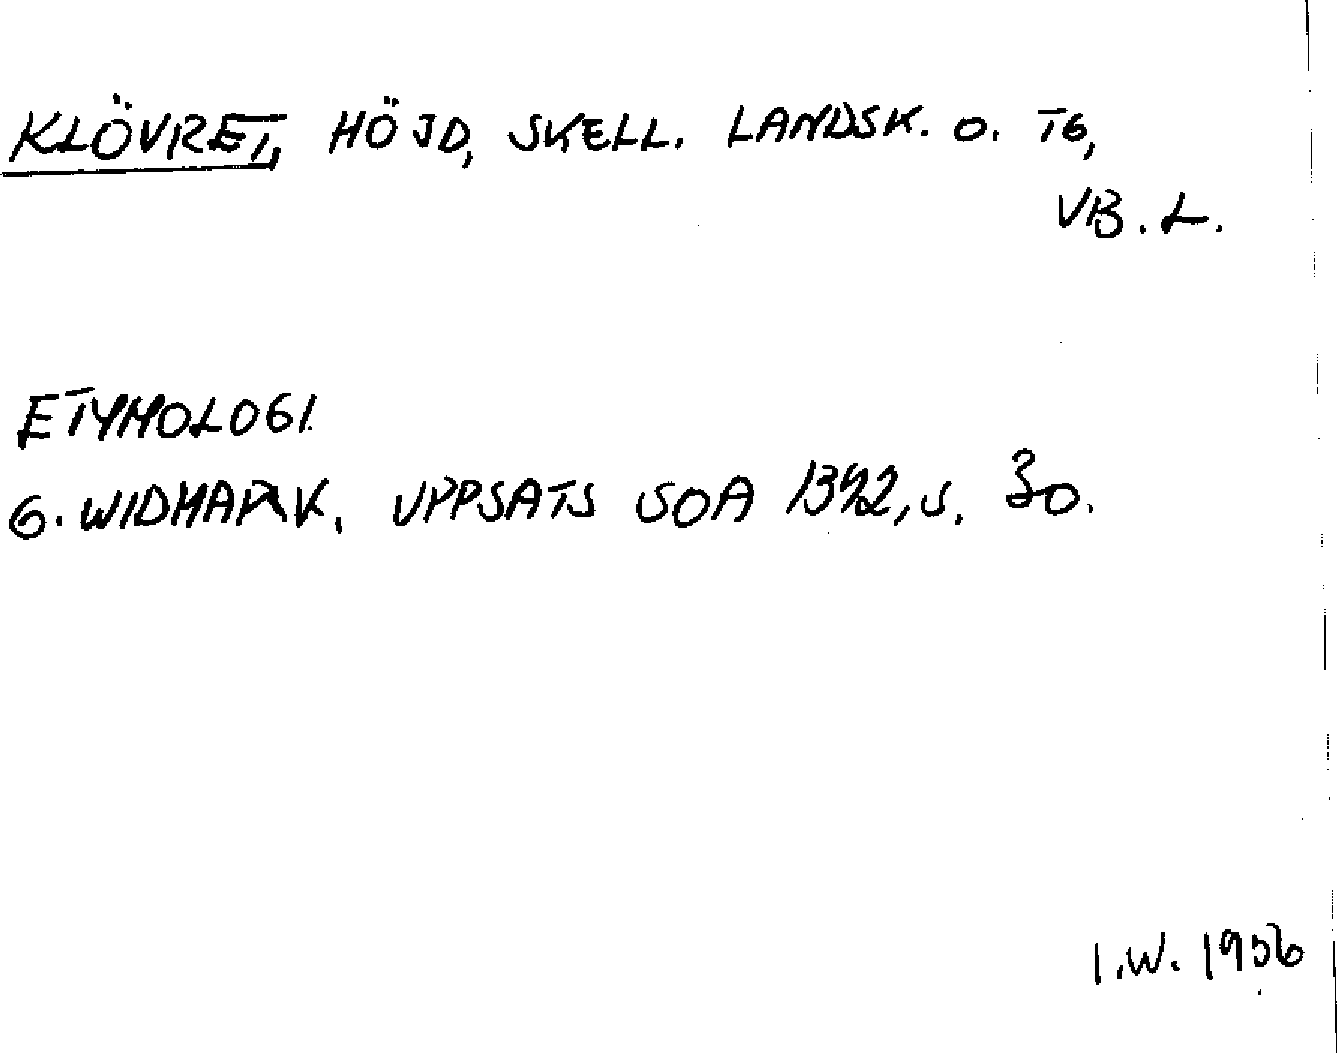 KLÖVRET, HÖJD, SKELL. LANDSK. O. TG,
VB. L.
ETYMOLOGI
G. WIDMARK, UPPSATS SOA 1392, S. 30.
I.W. 1956